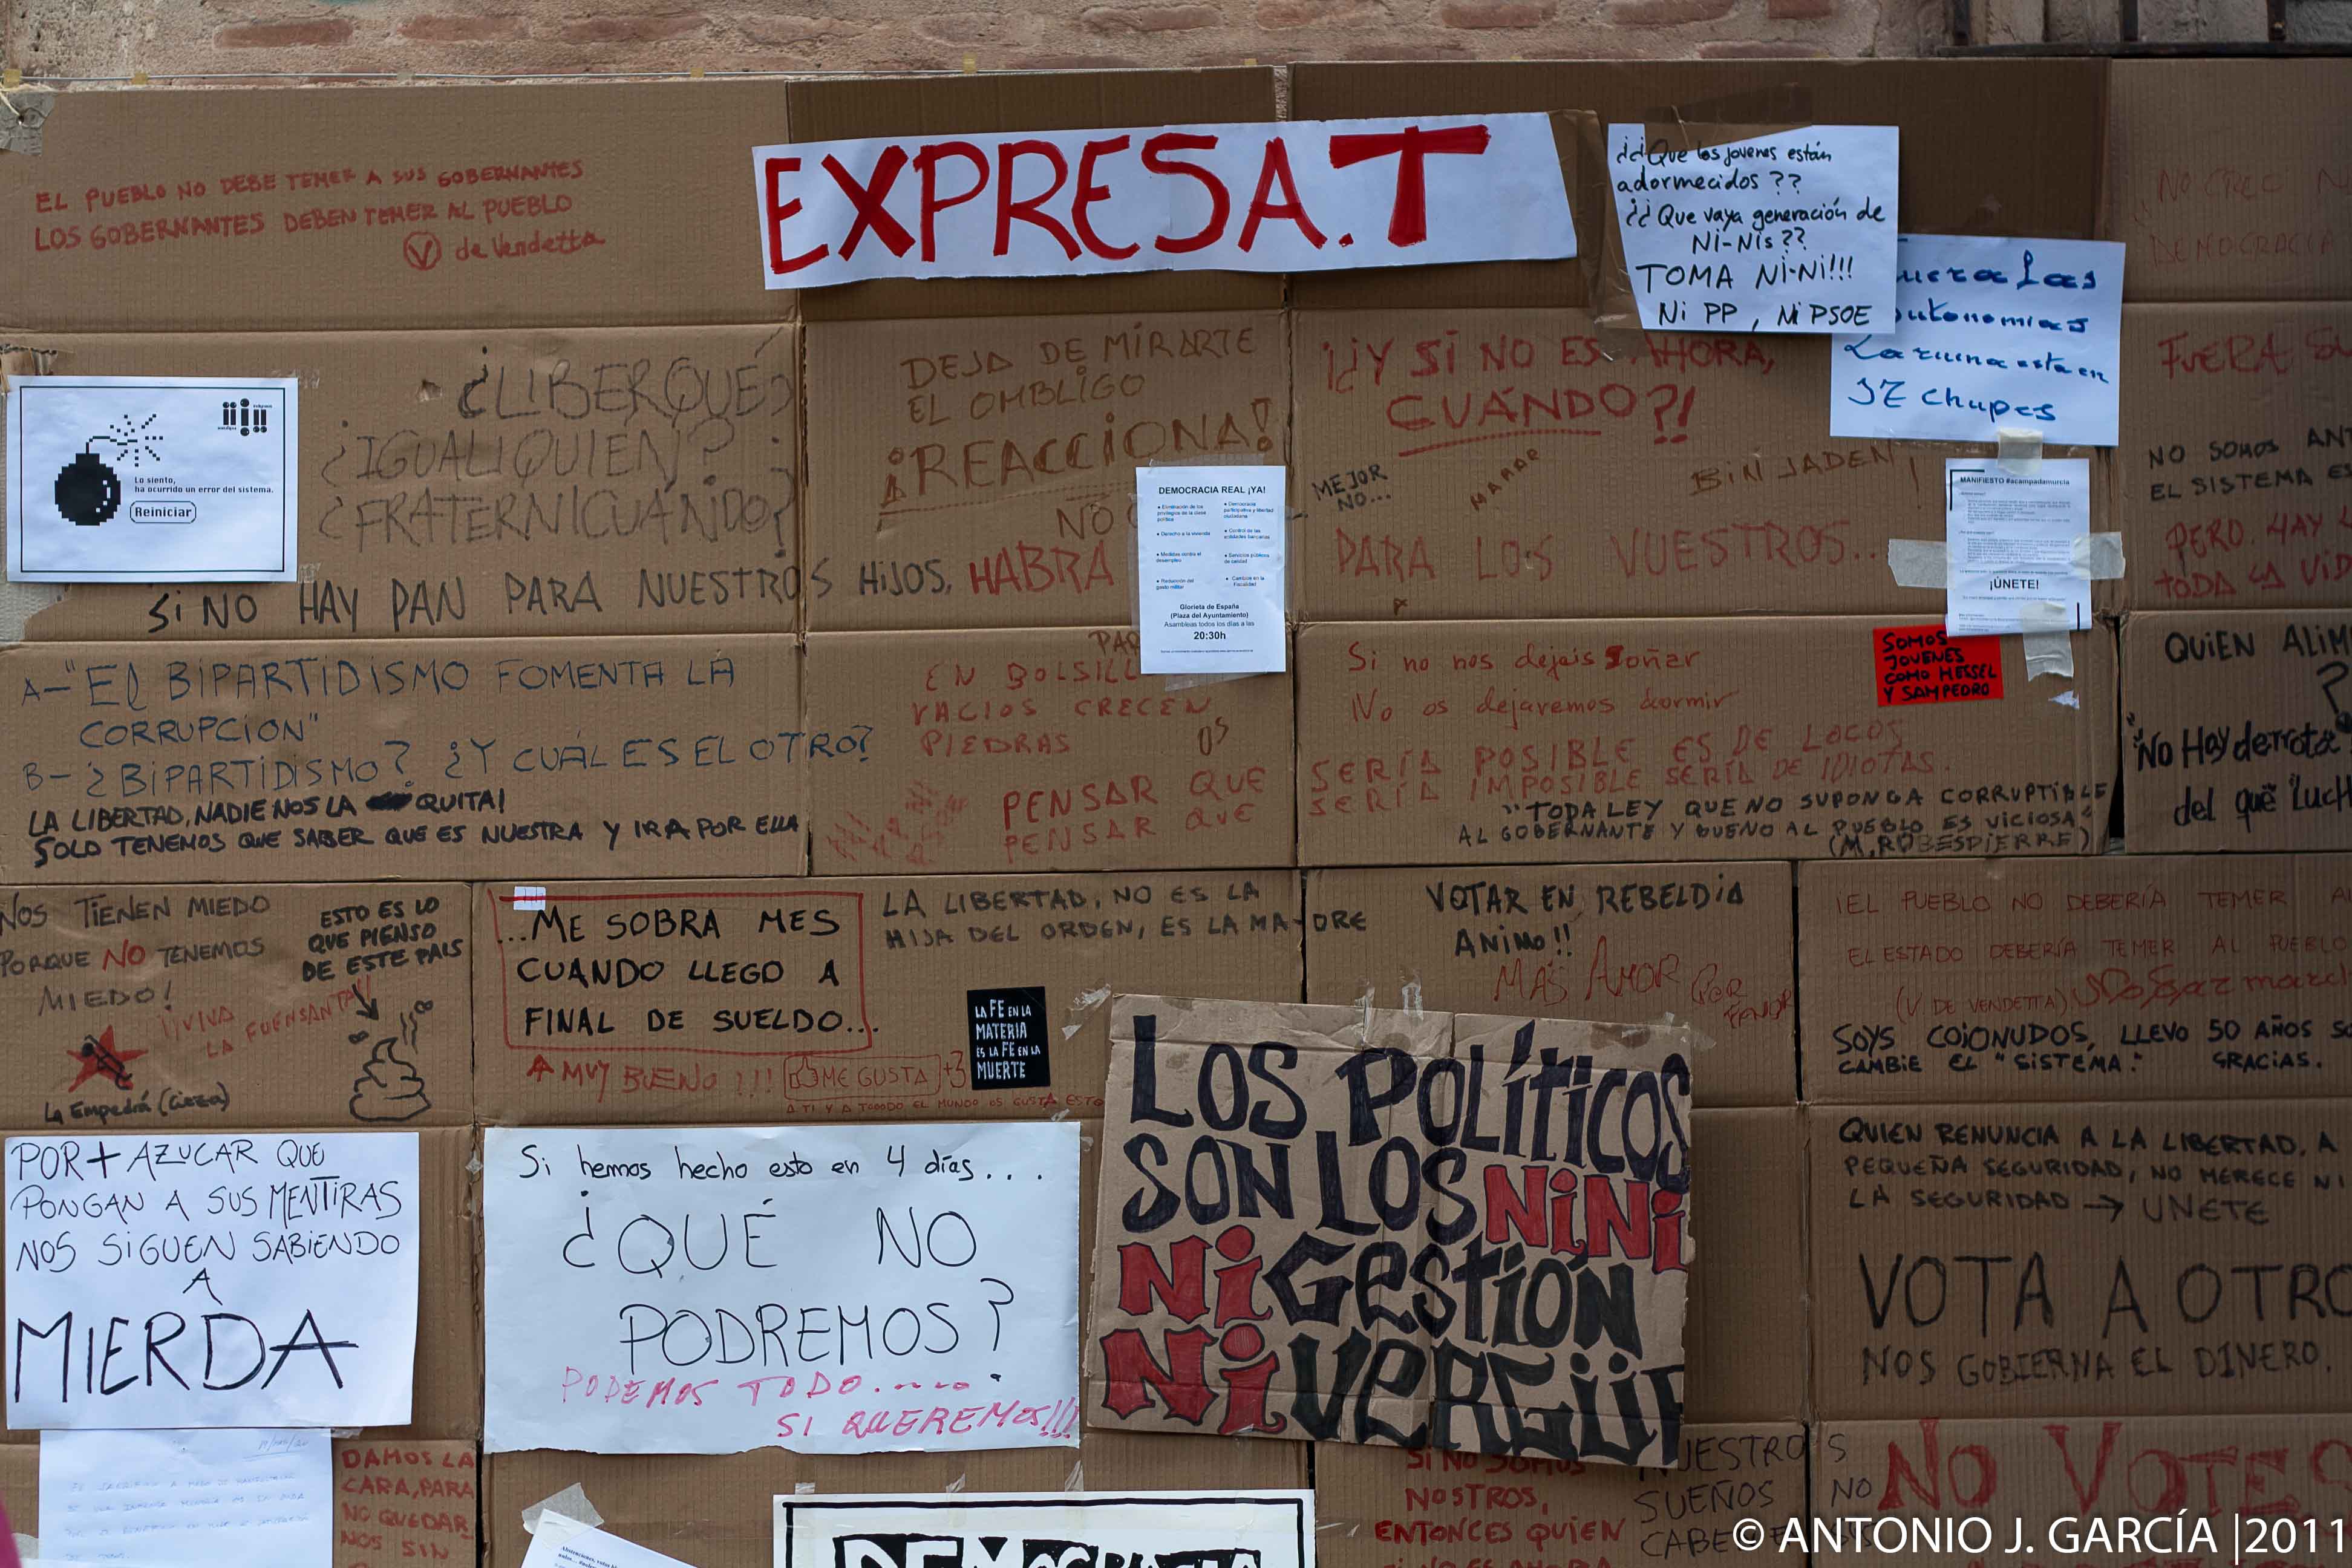 EXPRESA.T
EL PUEBLO NO DEBE TEMER A SUS GOBERNANTES
LOS GOBERNANTES DEBEN TEMER AL PUEBLO
V de Vendetta
¿¿Que los jovenes están
adormecidos??
¿¿Que vaya generación de
Ni-Nis??
TOMA Ni-Ni!!!
Ni PP, Ni PSOE
uera las
utonomias
La ruina esta en
SE chupes
DEMOCRACIA
FUERA
Lo siento,
ha ocurrido un error del sistema.
Reiniciar
¿LIBERQUÉ?
¿IGUALIQUIEN?
¿FRATERNICUÁNDO?
DEJA DE MIRARTE
EL OMBLIGO
¡REACCIONA!
NO
¡¿Y SI NO ES AHORA,
CUÁNDO?!
MEJOR
NO...
BIN JADEN
SI NO HAY PAN PARA NUESTROS HIJOS, HABRÁ
PARA LOS VUESTROS...
DEMOCRACIA REAL ¡YA!
• Eliminación de los
privilegios de la clase
política
• Derecho a la vivienda
• Medidas contra el
desempleo
• Reducción del
gasto militar
• Democracia
participativa y libertad
ciudadana
• Control de las
entidades bancarias
• Servicios públicos
de calidad
• Cambios en la
Fiscalidad
Glorieta de España
(Plaza del Ayuntamiento)
Asambleas todos los días a las
20:30h
MANIFIESTO #acampadamurcia
¡ÚNETE!
NO SOMOS ANT
EL SISTEMA E
PERO HAY
TODA LA VID
A-"El BIPARTIDISMO FOMENTA LA
CORRUPCIÓN"
B-¿BIPARTIDISMO? ¿Y CUÁL ES EL OTRO?
LA LIBERTAD, NADIE NOS LA QUITA!
SOLO TENEMOS QUE SABER QUE ES NUESTRA Y IR A POR ELLA
PAQ
EN BOLSILL
VACIOS CRECEN
PIEDRAS
OS
PENSAR QUE
PENSAR QUE
Si no nos dejais soñar
No os dejaremos dormir
SERÍA POSIBLE ES DE LOCOS
SERÍA IMPOSIBLE SERÍA DE IDIOTAS.
"TODA LEY QUE NO SUPONGA CORRUPTIBLE
AL GOBERNANTE Y BUENO AL PUEBLO ES VICIOSA"
(M. ROBESPIERRE)
SOMOS
JOVENES
COMO HESSEL
Y SAMPEDRO
QUIEN ALIM
?
"No Hay derrota
del que Luch
NOS TIENEN MIEDO
PORQUE NO TENEMOS
MIEDO!
¡¡VIVA
LA FUENSANTA!!
La Empedrá (Cieza)
ESTO ES LO
QUE PIENSO
DE ESTE PAIS
...ME SOBRA MES
CUANDO LLEGO A
FINAL DE SUELDO...
MUY BUENO!!!
ME GUSTA +3
A TI Y A TOODO EL MUNDO OS GUSTA ESTO
LA LIBERTAD, NO ES LA
HIJA DEL ORDEN, ES LA MADRE
LA FE EN LA
MATERIA
ES LA FE EN LA
MUERTE
VOTAR EN REBELDÍA
ANIMO!!
MAS AMOR POR
FAVOR
¡EL PUEBLO NO DEBERÍA TEMER A
EL ESTADO DEBERÍA TEMER AL PUEBLO
(V DE VENDETTA)
SOYS COJONUDOS, LLEVO 50 AÑOS
CAMBIE EL "SISTEMA". GRACIAS.
POR + AZUCAR QUE
PONGAN A SUS MENTIRAS
NOS SIGUEN SABIENDO
A
MIERDA
Si hemos hecho esto en 4 días...
¿QUÉ NO
PODREMOS?
PODEMOS TODO......
SI QUEREMOS!!!
LOS POLÍTICOS
SON LOS NiNi
Ni GESTIÓN
Ni VERGÜE
QUIEN RENUNCIA A LA LIBERTAD, A
PEQUEÑA SEGURIDAD, NO MERECE NI
LA SEGURIDAD → UNETE
VOTA A OTRO
NOS GOBIERNA EL DINERO.
DAMOS LA
CARA, PARA
NO QUEDAR
NOS SIN
SI NO SOMOS
NOSTROS,
ENTONCES QUIEN
NUESTROS
SUEÑOS NO
CABE
NO VOTES
DEMOCRACIA
© ANTONIO J. GARCÍA |2011